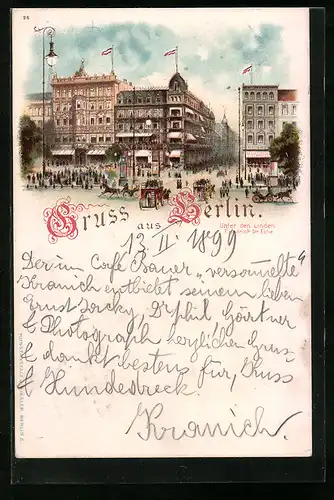 26
Gruss aus Berlin.
Unter den Linden
Friedrich Str. Ecke
13 II. 1899
Der im Café Bauer „versammelte"
Kranich entbietet seinem lieben
Ernst Dr phil Gärtner
& Photograph herzlichen Gruss
& dankt bestens für, Kuss
& Hundesbreck.
Kranich.